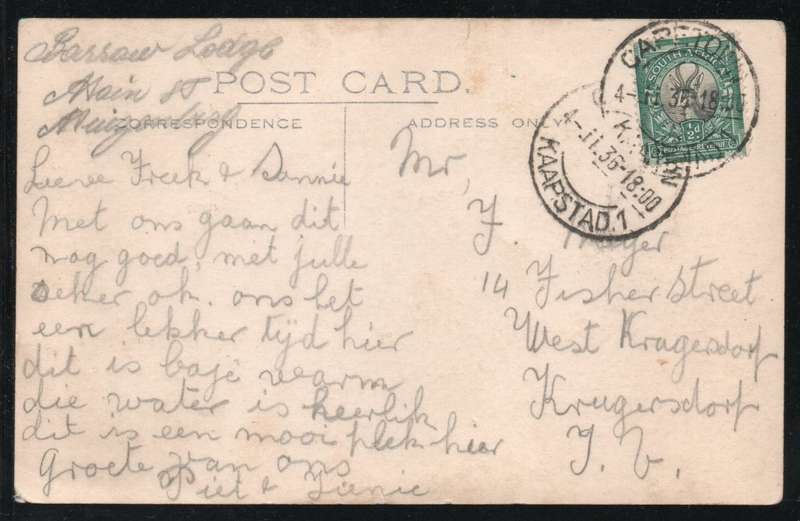 Barrow Lodge
Main St
Muizenberg
POST CARD.
CORRESPONDENCE
ADDRESS ONLY
Lieve Freek & Sannie
Met ons gaan dit
nog goed, met julle
seker ok. ons het
een lekker tyd hier
dit is baje warm
die water is heerlik
dit is een mooi plek hier
Groete van ons
Piet & Sienie
Mr,
J. Meyer
14 Fisher Street
West Krugersdorf
Krugersdorf
T. V.
CAPE TOWN
4-11.36-18.00
SOUTH AFRICA
½d
POSTAGE REVENUE
4-11.36-18.00
KAAPSTAD.1